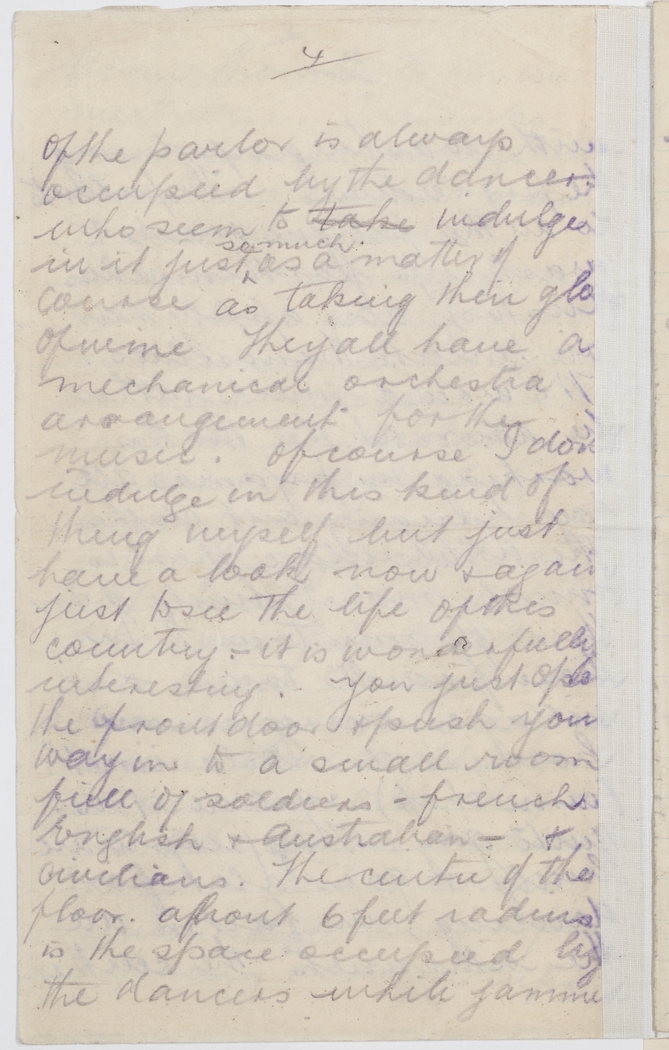 4
of the parlor is always
occupied by the dancers
who seem to take indulge
so much
in it just as a matter of
course as taking their gla
of wine They all have a
mechanical orchestra
arrangement for the
music. Of course I don
indulge in this kind of
thing myself but just
have a look now & again
just to see the life of this
country - it is wonderfully
interesting. You just ope
the front door & push you
way in to a small room
full of soldiers - french
English & Australian - &
civilians. The centre of the
floor. about 6 feet radius
is the space occupied by
the dancers while jamme